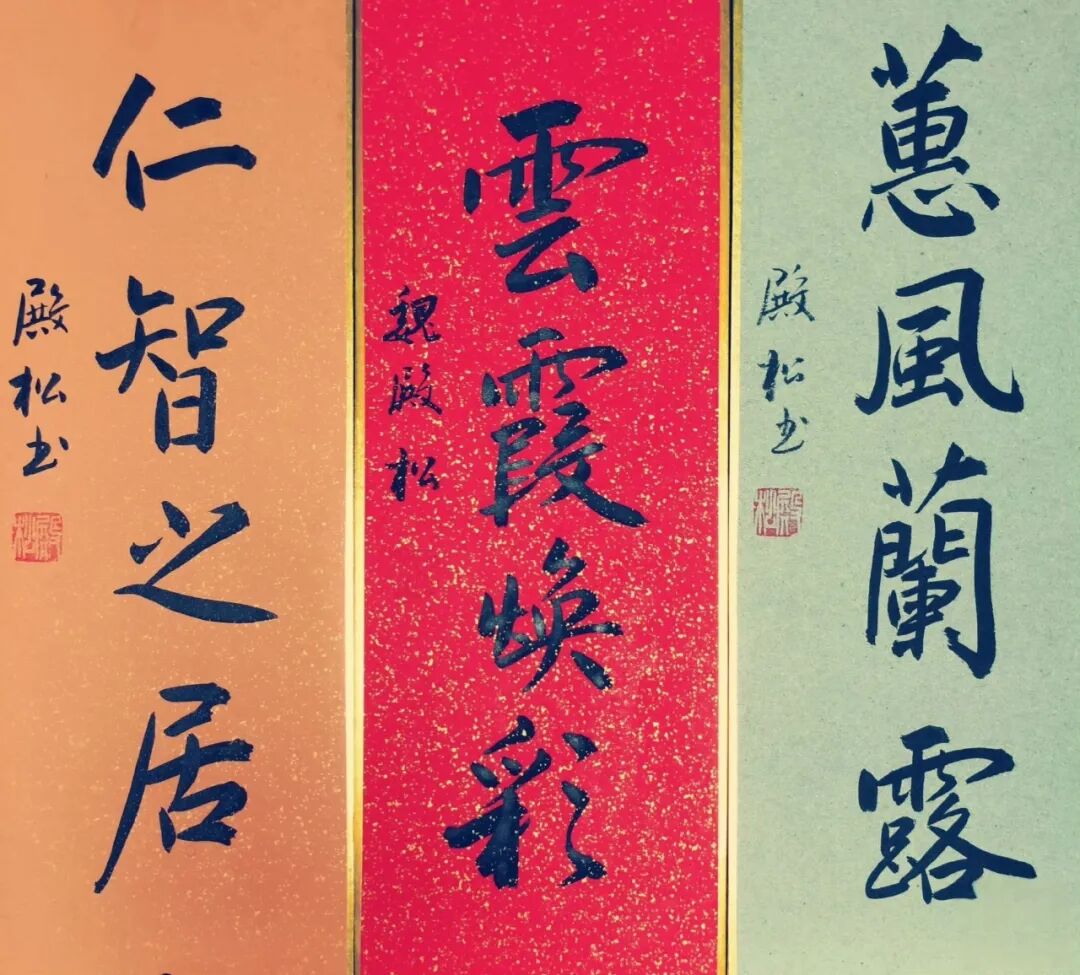 蕙風蘭露
殿松书
殿松
雲霞焕彩
魏殿松
仁智之居
殿松书
殿松